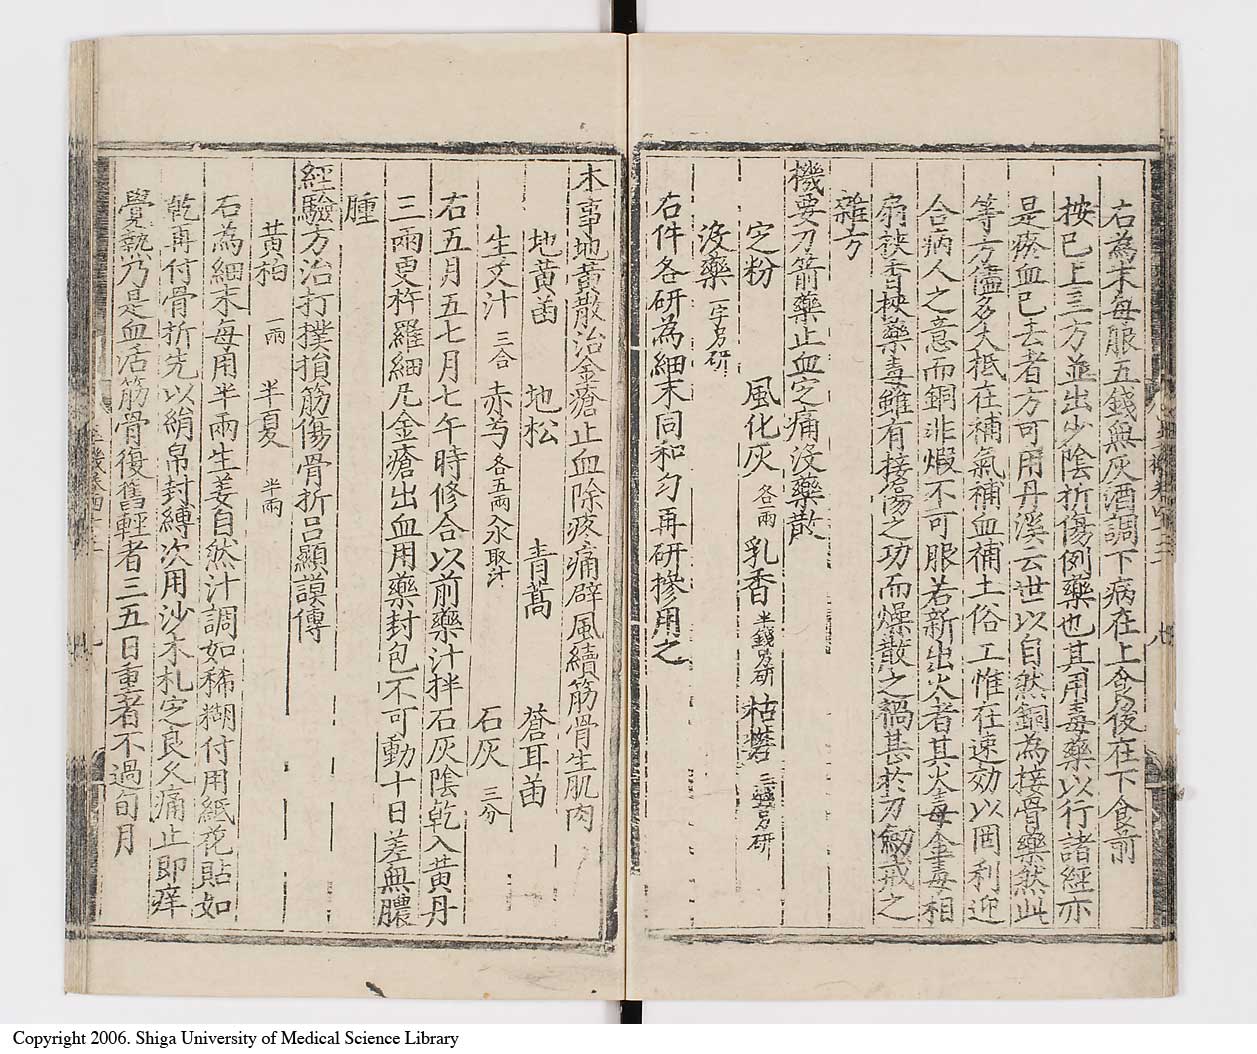 右為末每服五錢無灰酒調下病在上食後在下食前
按已上三方並出少陰折傷例藥也其用毒藥以行諸經亦
是瘀血已去者方可用丹溪云世以自然銅為接骨藥然此
等方儘多大抵在補氣補血補土俗工惟在速効以罔利迎
合病人之意而銅非煅不可服若新出火者其火毒金毒相
扇挾香桋藥毒雖有接傷之功而燥散之禍甚於刀劒戒之
雜方
機要刀箭藥止血定痛沒藥散
定粉 風化灰各一兩 乳香半錢另研 枯礬三錢另研
沒藥一字另研
右件各研為細末同和勻再研摻用之
本事地黃散治金瘡止血除疼痛辟風續筋骨生肌肉
地黃苗 地松 青蒿 蒼耳苗
生艾汁三合 赤芍各五兩入水取汁 石灰三分
右五月五七月七午時修合以前藥汁拌石灰陰乾入黃丹
三兩更杵羅細凡金瘡出血用藥封包不可動十日差無膿
腫
經驗方治打撲損筋傷骨折呂顯謨傳
黃柏一兩 半夏半兩
右為細末每用半兩生姜自然汁調如稀糊付用紙花貼如
乾再付骨折先以絹帛封縛次用沙木札定良久痛止即痒
覺熱乃是血活筋骨復舊輕者三五日重者不過旬月
Copyright 2006. Shiga University of Medical Science Library